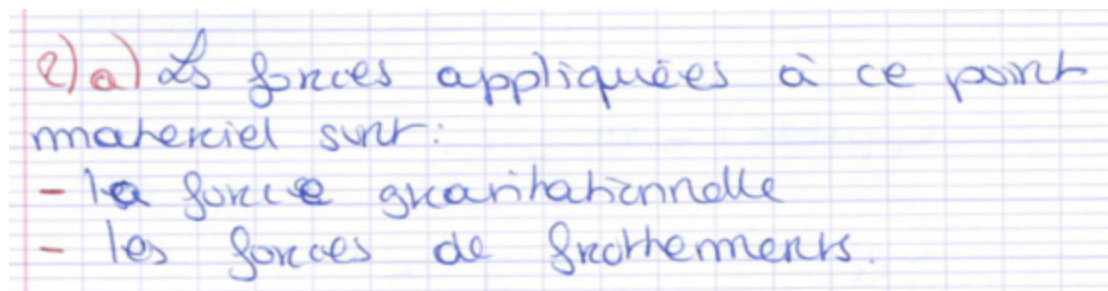 2) a) Les forces appliquées à ce point
materiel sont:
- la force gravitationnelle
- les forces de frottements.